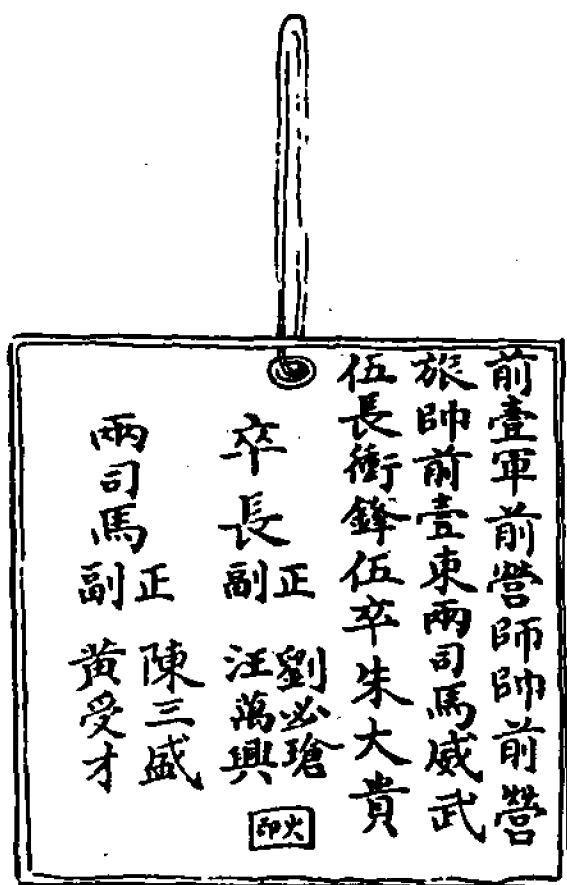 前壹軍前營師帥前營
旅帥前壹東兩司馬威武
伍長衝鋒伍卒朱大貴
卒長
正 劉必瑲
副 汪萬興
兩司馬
正 陳三盛
副 黃受才
火印